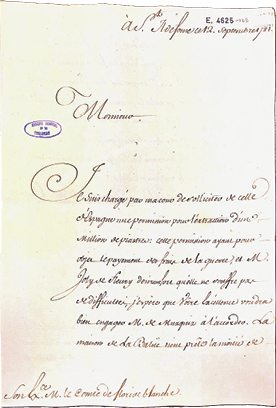 E. 4625
à St. Ildefonse ce 12. septembre 1781.
Monsieur
Je suis chargé par ma cour de solliciter de celle
d'Espagne une permission pour l'extraction d'un
Million de piastres: cette permission ayant pour
objet le payement des frais de la guerre, et M.
Joly de Fleury désirant qu'elle ne souffre pas
de difficultés, j'espère que Votre Excellence voudra
bien engager M. de Musquiz à l'accorder. La
maison de La
Son Exce. M. le Comte de floride blanche